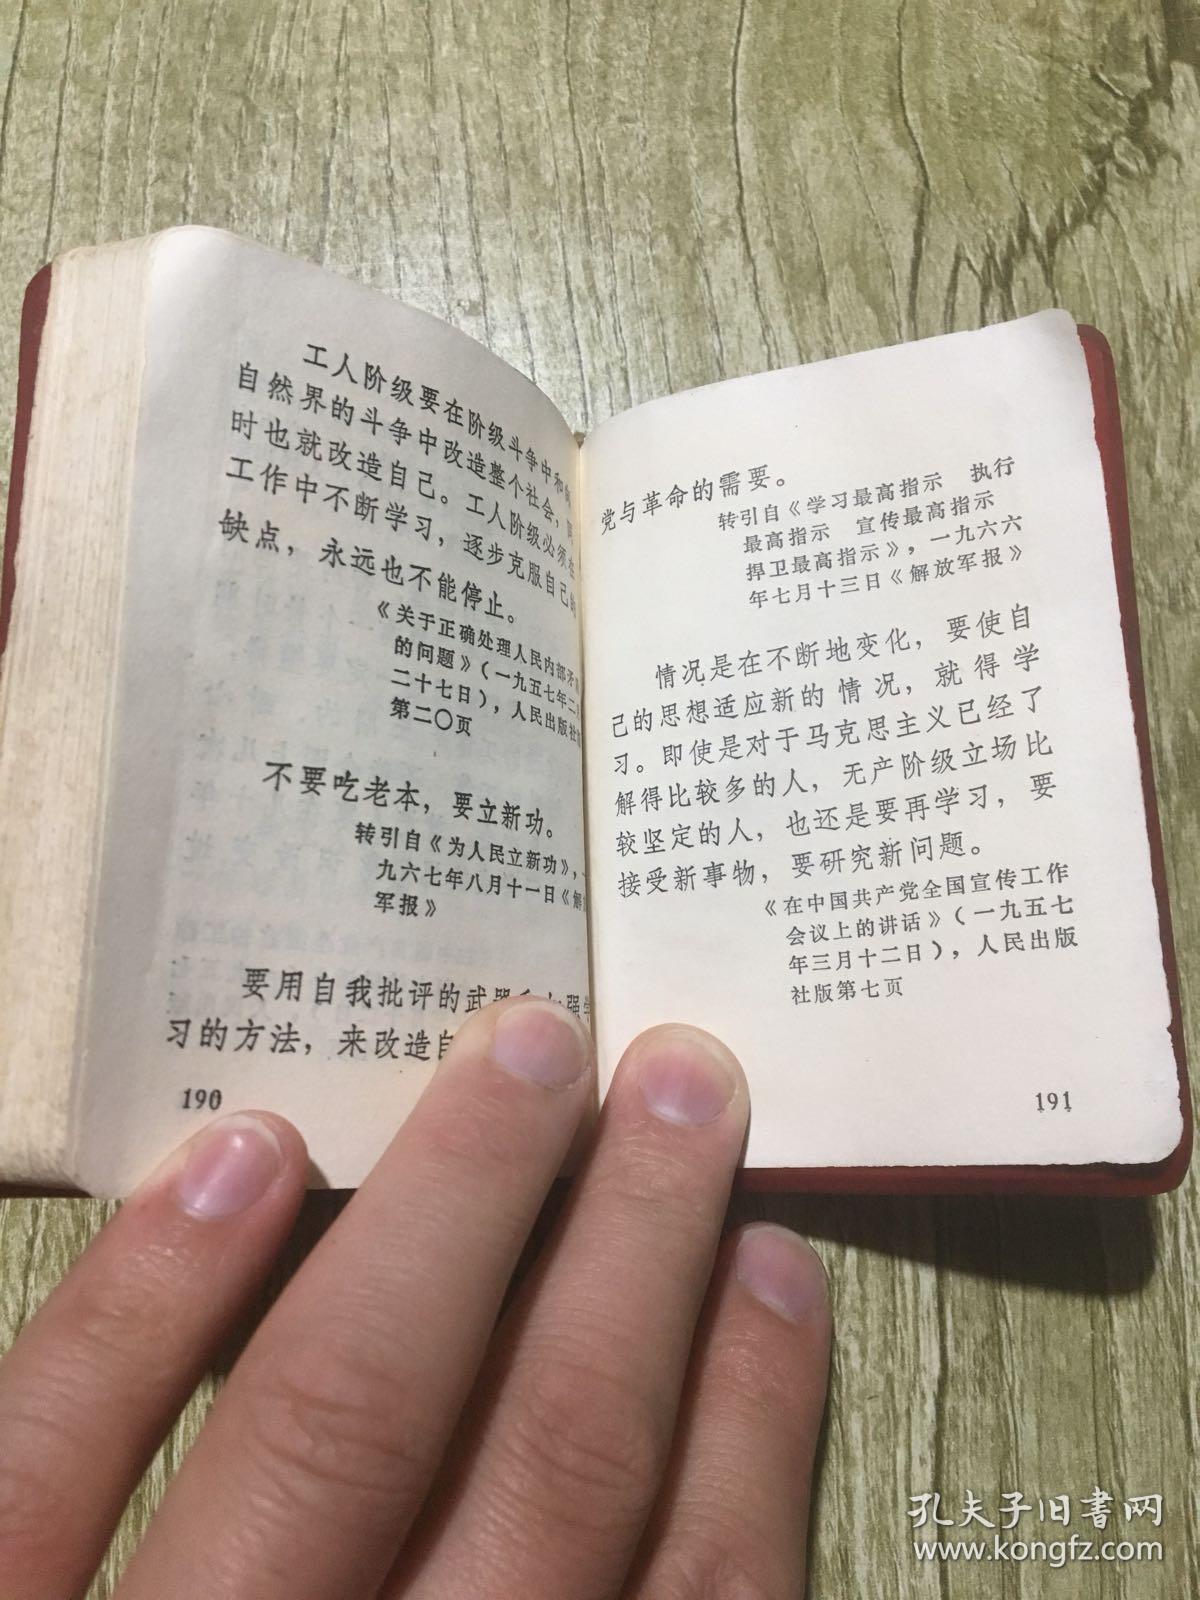 工人阶级要在阶级斗争中和
自然界的斗争中改造整个社会，同
时也就改造自己。工人阶级必须在
工作中不断学习，逐步克服自己的
缺点，永远也不能停止。
《关于正确处理人民内部矛
的问题》（一九五七年二
二十七日），人民出版社
第二〇页
不要吃老本，要立新功。
转引自《为人民立新功》，
九六七年八月十一日《解
军报》
要用自我批评的武器 强学
习的方法，来改造自
190
党与革命的需要。
转引自《学习最高指示 执行
最高指示 宣传最高指示
捍卫最高指示》，一九六六
年七月十三日《解放军报》
情况是在不断地变化，要使自
己的思想适应新的情况，就得学
习。即使是对于马克思主义已经了
解得比较多的人，无产阶级立场比
较坚定的人，也还是要再学习，要
接受新事物，要研究新问题。
《在中国共产党全国宣传工作
会议上的讲话》（一九五七
年三月十二日），人民出版
社版第七页
191
孔夫子旧书网
www.kongfz.com